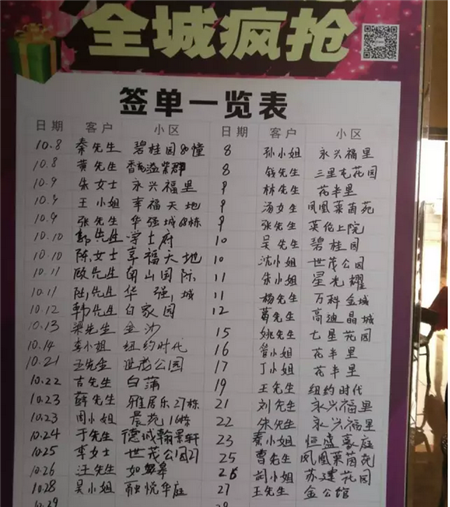 全城疯抢
签单一览表
日期 客户 小区 日期 客户 小区
10.8 秦先生 碧桂园8幢 8 孙小姐 永兴福里
10.8 黄先生 8 钱先生 三里屯花园
10.9 朱女士 永兴福里 9 林先生 花丰里
10.9 王小姐 幸福天地 9 汤女士 凤凰莱茵苑
10.9 张先生 华强城8栋 9 张先生 英伦上院
10.10 郭先生 学士府 10 吴先生 碧桂园
10.10 陈女士 幸福天地 10 沈小姐 世茂公园
10.11 殷先生 国际 11 朱小姐 星光耀
10.11 陆先生 华强城 11 杨先生 万科金城
10.12 韩先生 白家园 12 葛先生 高迪晶城
10.13 先生 金沙 15 姚先生 七星花园
10.14 李小姐 纽约时代 16 管小姐 花丰里
10.21 王先生 世茂公园 17 丁小姐 花丰里
10.22 古先生 白蒲 19 王先生 纽约时代
10.23 薛先生 雅居乐27栋 21 刘先生 永兴福里
10.23 周小姐 晨苑16栋 22 朱先生 永兴福里
10.24 于先生 德诚翰景轩 23 小姐 恒盛豪庭
10.25 李女士 世茂公园 25 曹先生 凤凰莱茵苑
10.26 汪先生 如皋 26 小姐 苏建花园
10.28 吴小姐 融悦华庭 27 王先生 金公馆
10.29